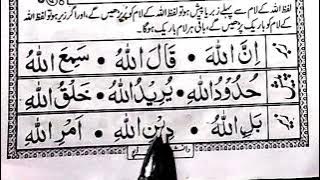 لفظ اللہ کے لام سے پہلے زبر یا پیش ہو تو لفظ اللہ کے لام کو پُر پڑھیں گے، اور اگر زیر ہو تو لفظ اللہ
کے لام کو باریک پڑھیں گے، باقی ہر لام باریک ہوگا۔
اِنَّ اللهُ • قَالَ اللهُ • سَمِعَ اللهُ
حُدُوْدُ اللهِ • يُرِيْدُ اللهُ • خَلْقُ اللهِ
بَلِ اللهُ • دِيْنِ اللهِ • اَمْرِ اللهِ